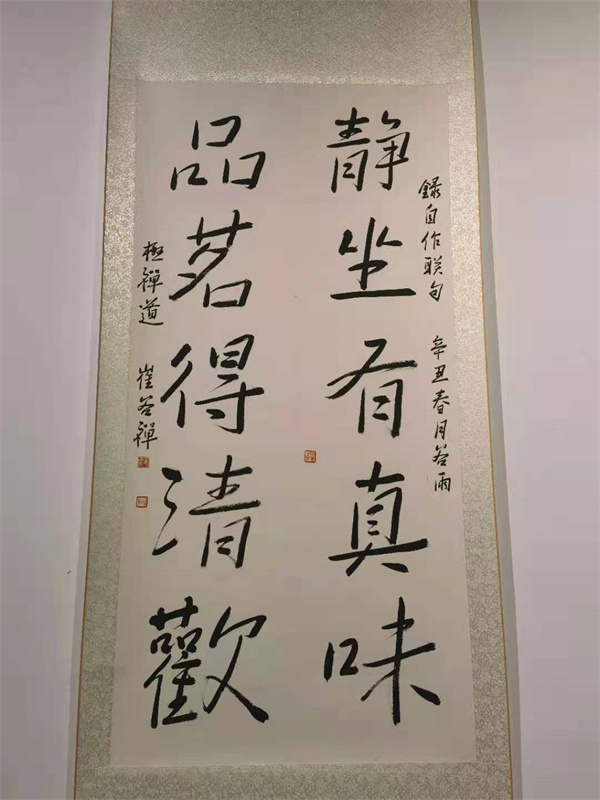 録自作联句 辛丑春月谷雨
静坐有真味
品茗得清歡
極禪道 崔谷禪